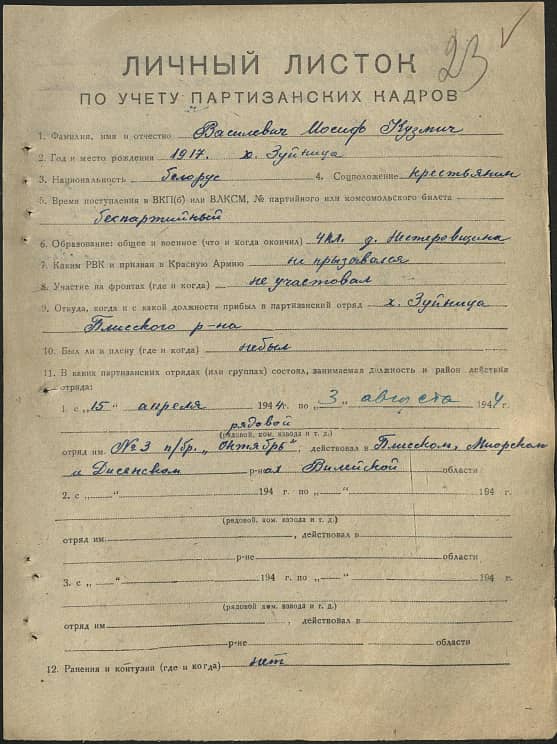 23
ЛИЧНЫЙ ЛИСТОК
ПО УЧЕТУ ПАРТИЗАНСКИХ КАДРОВ
1. Фамилия, имя и отчество Василевич Иосиф Кузмич
2. Год и место рождения 1917. х. Зуйница
3. Национальность белорус 4. Соцположение крестьянин
5. Время поступления в ВКП(б) или ВЛКСМ, № партийного или комсомольского билета
беспартийный
6. Образование: общее и военное (что и когда окончил) 4 кл. д. Нестеровщина
7. Каким РВК и призван в Красную Армию не прызвался
8. Участие на фронтах (где и когда) не участовал
9. Откуда, когда и с какой должности прибыл в партизанский отряд х. Зуйница
Плисского р-на
10. Был ли в плену (где и когда) небыл
11. В каких партизанских отрядах (или группах) состоял, занимаемая должность и район действия
отряда:
1. с „15" апреля 1944 г. по „3" августа 1944 г.
рядовой
(рядовой, ком. взвода и т. д.)
отряд им. № 3 п/бр. „Октябрь", действовал в Плисском, Миорском
и Дисенском р-нах Вилейской области
2. с „ " 194 г. по „ " 194 г.
(рядовой, ком. взвода и т. д.)
отряд им. , действовал в
р-не области
3. с „ " 194 г. по „ " 194 г.
(рядовой ком. взвода и т. д.)
отряд им. , действовал в
р-не области
12. Ранения и контузии (где и когда) нет